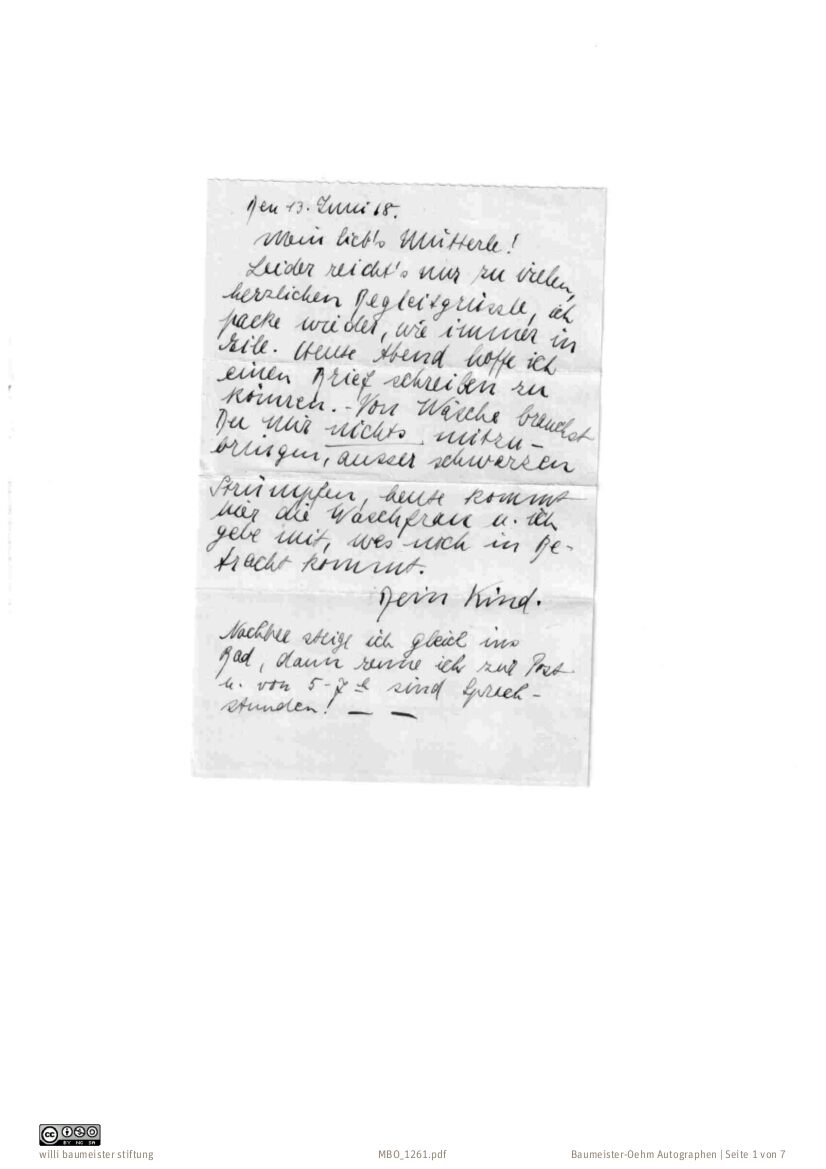 Den 13. Juni 18.
Mein lieb's Mütterle!
Leider reicht's nur zu vielen,
herzlichen Begleitgrüssle, ich
packe wieder, wie immer in
Eile. Heute Abend hoffe ich
einen Brief schreiben zu
können. - Von Wäsche brauchst
Du mir nichts mitzu-
bringen, ausser schwarzen
Strümpfen, heute kommt
hier die Waschfrau u. ich
gebe mit, was noch in Be-
tracht kommt.
Dein Kind.
Nachher steige ich gleich ins
Bad, dann renne ich zur Post
u. von 5-7 h sind Sprech-
stunden! — —
CC BY NC SA
willi baumeister stiftung
MBO_1261.pdf
Baumeister-Oehm Autographen | Seite 1 von 7